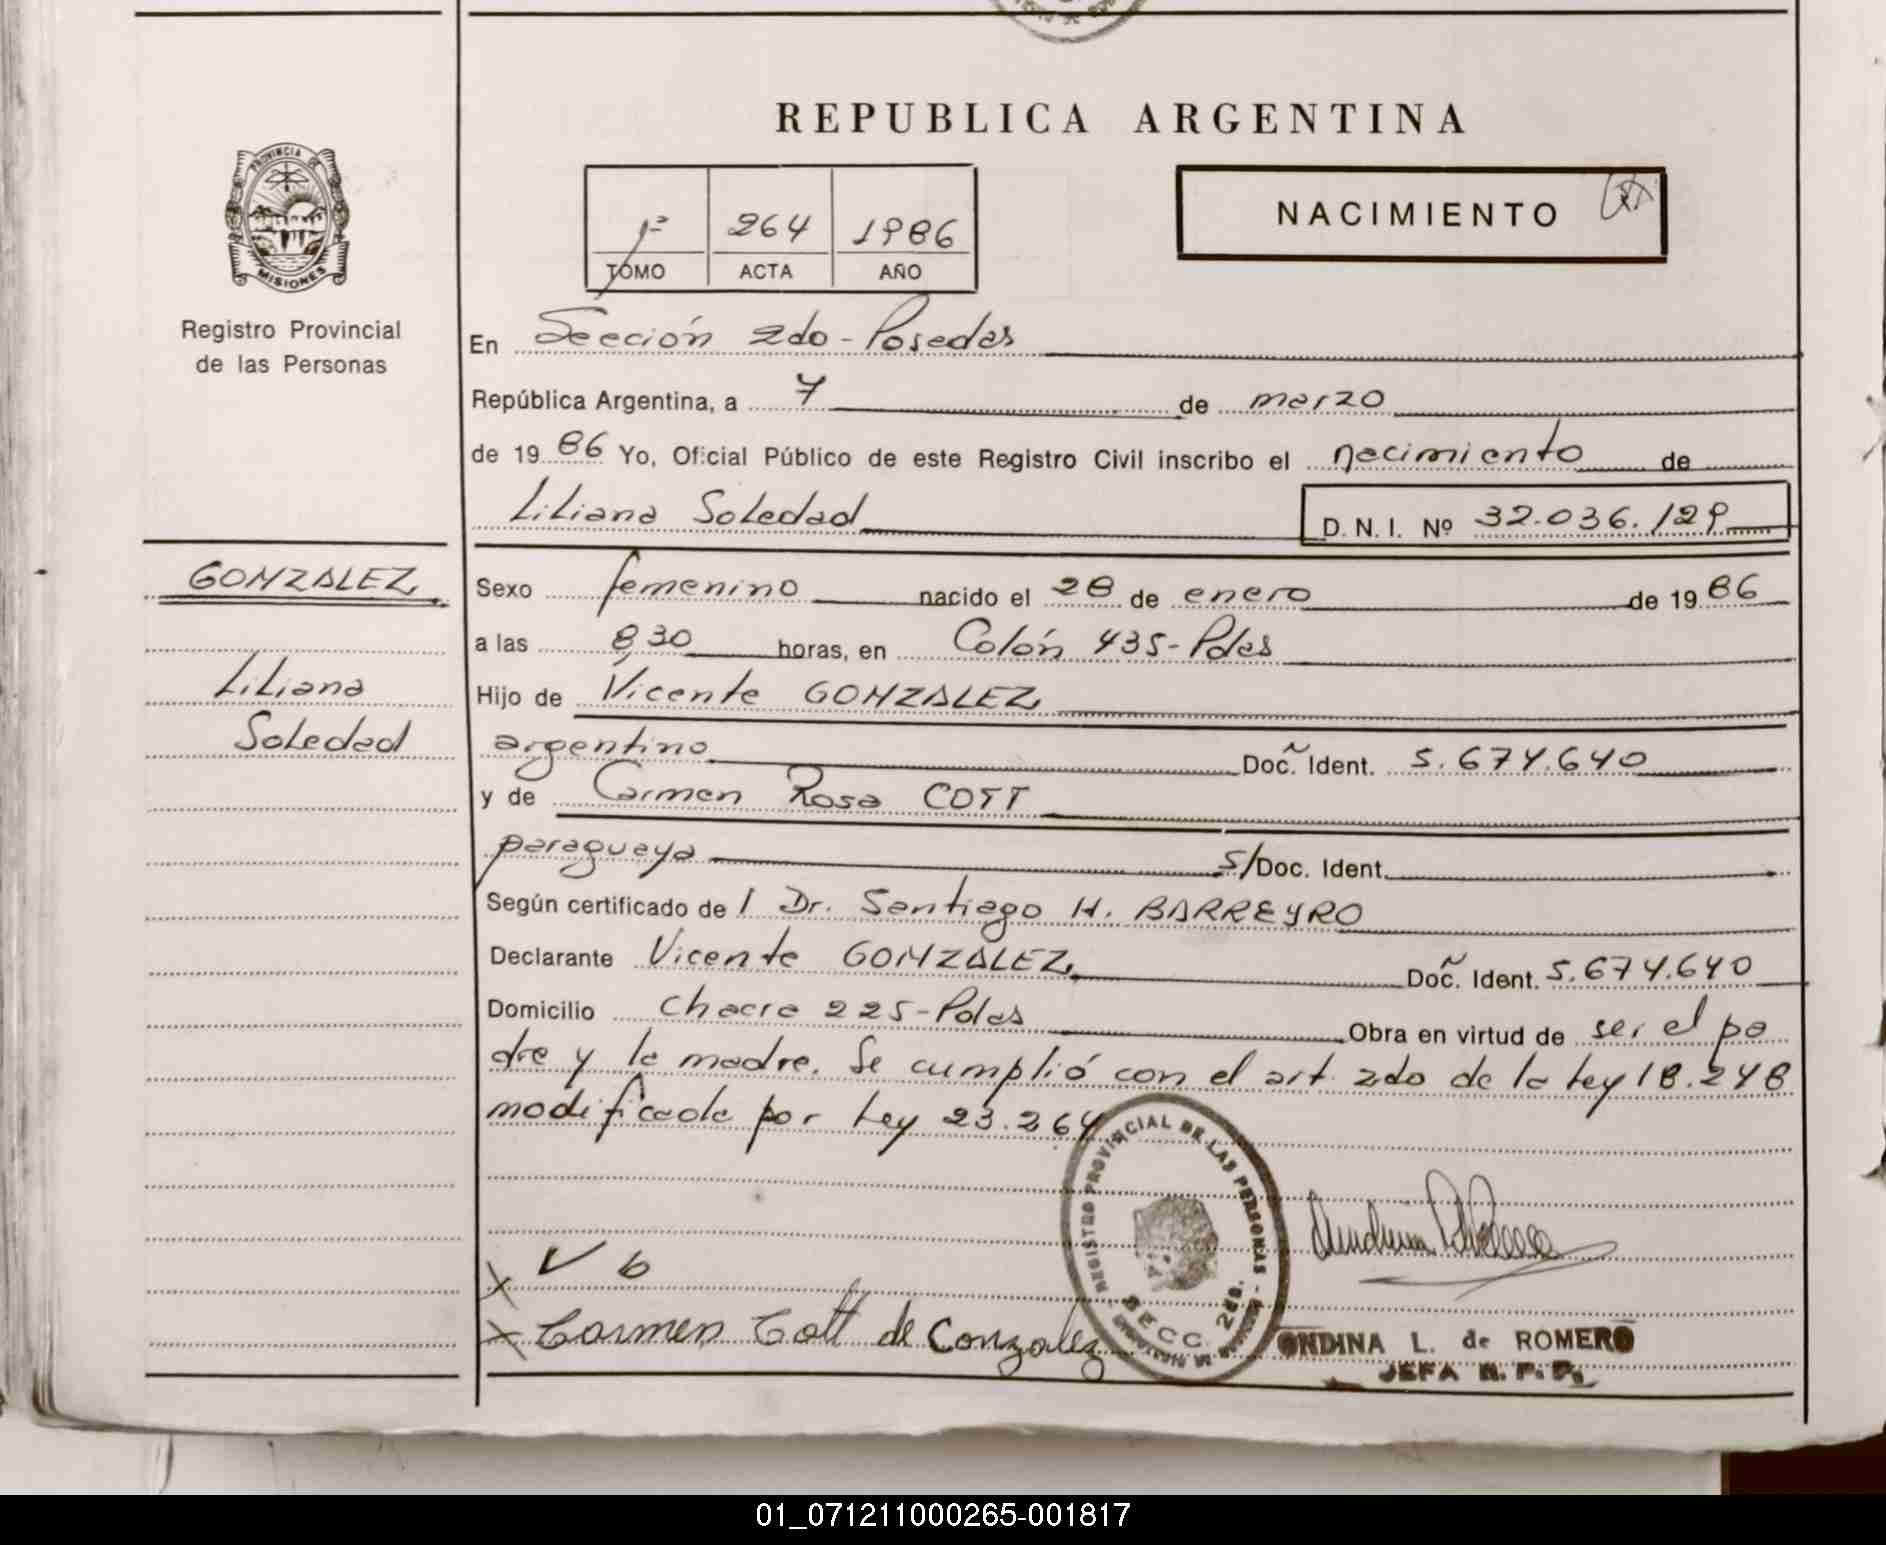 REPUBLICA ARGENTINA
PROVINCIA DE
MISIONES
Registro Provincial
de las Personas
1º 264 1986
TOMO ACTA AÑO
NACIMIENTO
En Sección 2do - Posadas
República Argentina, a 7 de marzo
de 1986 Yo, Oficial Público de este Registro Civil inscribo el nacimiento de
Liliana Soledad D. N. I. Nº 32.036.129
GONZALEZ
Liliana
Soledad
Sexo femenino nacido el 28 de enero de 1986
a las 8,30 horas, en Colón 435 - Pdas
Hijo de Vicente GONZALEZ
argentino Doc. Ident. 5.674.640
y de Carmen Rosa COTT
paraguaya s/Doc. Ident.
Según certificado de l Dr. Santiago H. BARREYRO
Declarante Vicente GONZALEZ Doc. Ident. 5.674.640
Domicilio Chacra 225 - Pdas Obra en virtud de ser el pa
dre y la madre. Se cumplió con el art. 2do de la Ley 18.248
modificada por Ley 23.264
REGISTRO PROVINCIAL DE LAS PERSONAS
SECC. 2da.
V b
x Carmen Cott de Gonzalez
ONDINA L. de ROMERO
JEFA R. P. P.
01_071211000265-001817